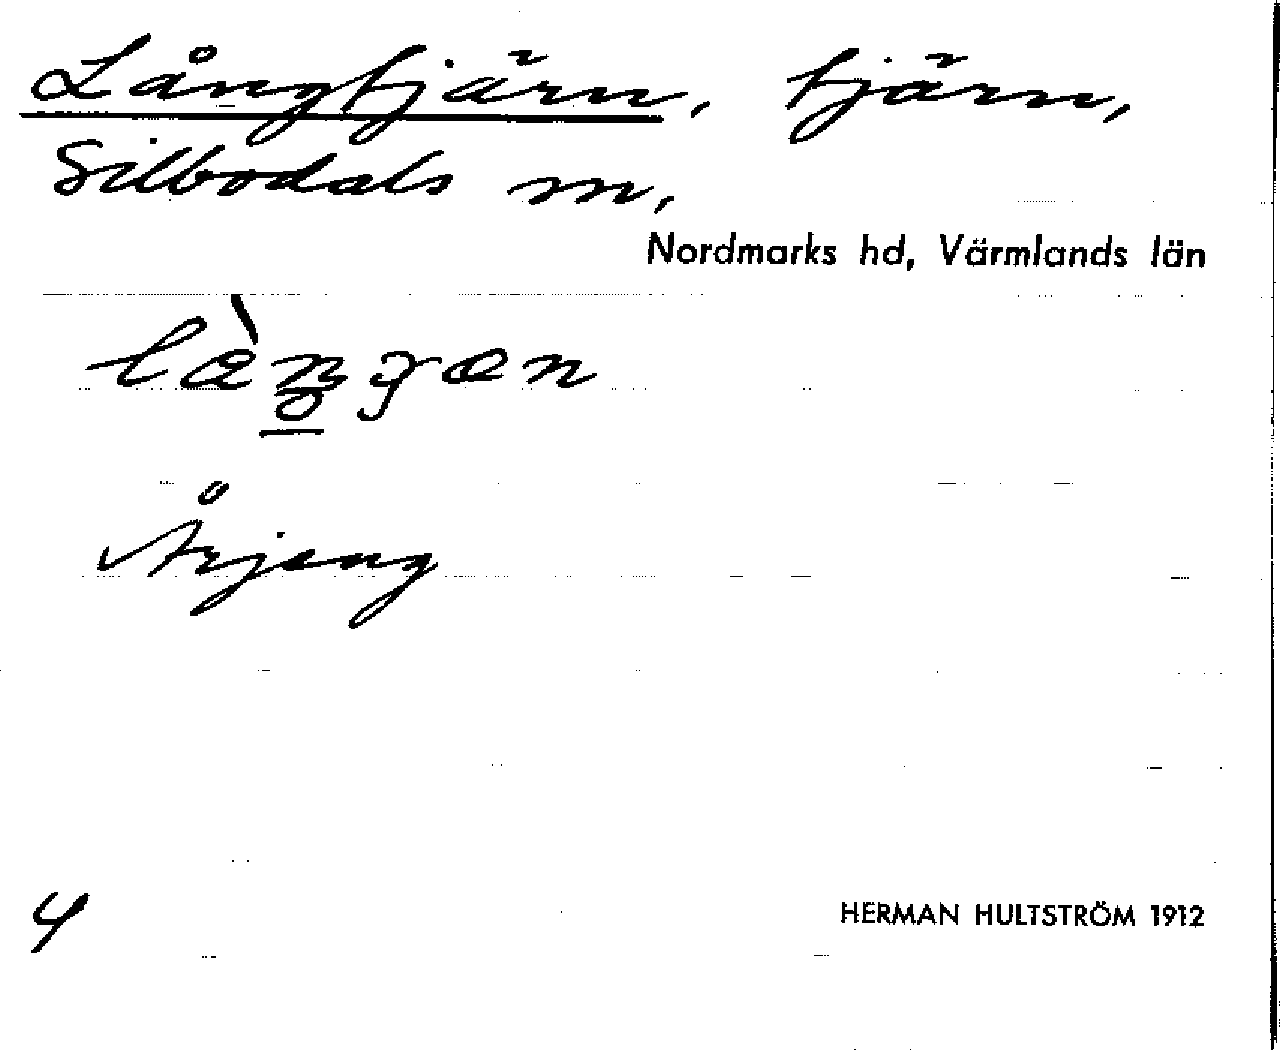 Långtjärn, tjärn,
Silbodals sn,
Nordmarks hd, Värmlands län
Årjeng
4
HERMAN HULTSTRÖM 1912